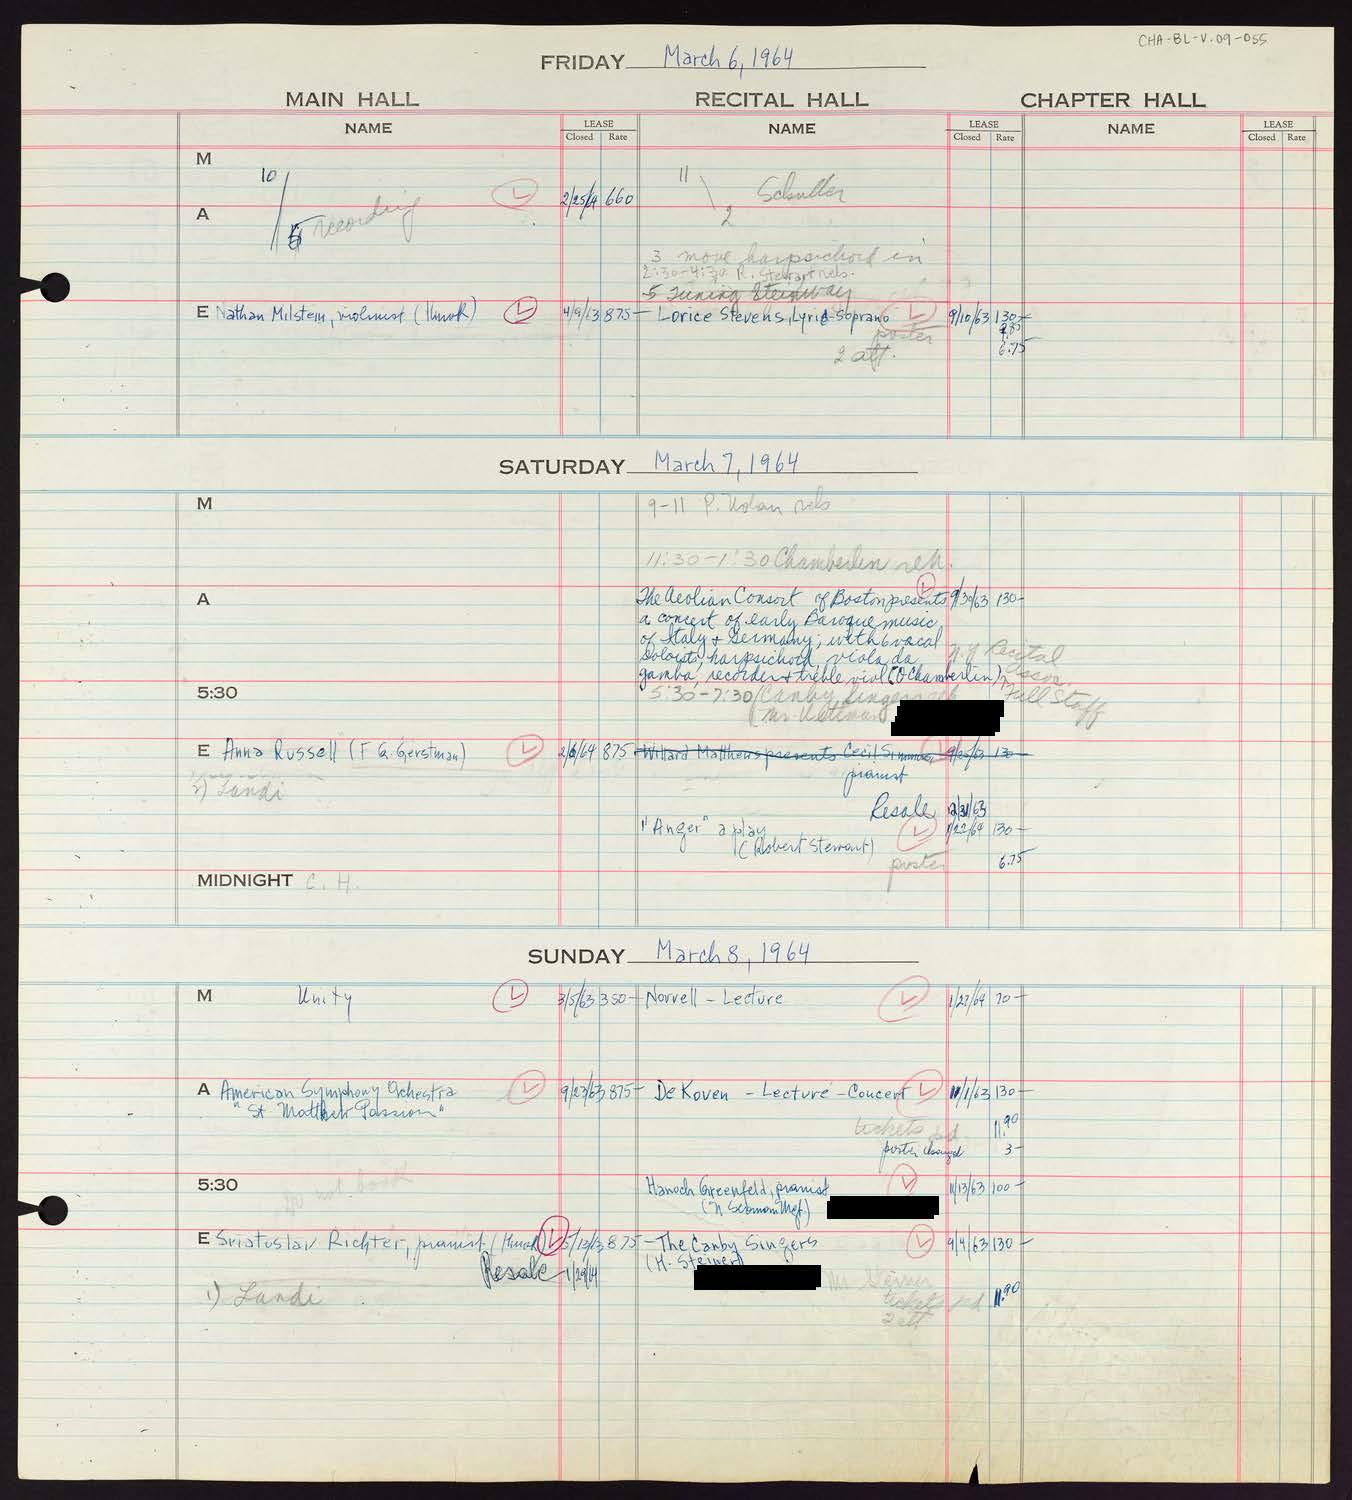 CHA-BL-V.09-055
FRIDAY March 6, 1964
MAIN HALL RECITAL HALL CHAPTER HALL
NAME LEASE Closed Rate NAME LEASE Closed Rate NAME LEASE Closed Rate
M
10 / 5 recording 2/25/64 660
11 \ 2 Schuller
A
3 move harpsichord in
2:30-4:30 R. Stewart rehs.
5 Tuning Steinway
E Nathan Milstein, violinist (Hurok) 4/9/63 875-
Lorice Stevens, Lyric-Soprano 9/10/63 130-
poster
2 att. 6.75
SATURDAY March 7, 1964
M
9-11 P. Nolan rehs
11:30-1:30 Chamberlin reh.
A
The Aeolian Consort of Boston presents 9/30/63 130-
a concert of early Baroque music,
of Italy & Germany; with 6 vocal
soloists, harpsichord, viola da
gamba, recorder & treble viol (O Chamberlin)
N.Y. Recital
Assoc.
Full Staff
5:30
5:30-7:30 Canby Singers reh
E Anna Russell (F G. Gerstman) 2/6/64 875-
2) Landi
Willard Matthews presents Cecil 9/25/63 130-
pianist
Resale 12/31/63
"Anger" a play 1/22/64 130-
(Robert Stewart)
poster 6.75
MIDNIGHT C. H.
SUNDAY March 8, 1964
M Unity 3/5/63 350-
Norvell - Lecture 1/27/64 70-
A American Symphony Orchestra 9/23/63 875-
"St Matthew Passion"
De Koven - Lecture - Concert 11/1/63 130-
tickets pd. 11.90
poster charged 3-
5:30 Do not book
Hanoch Greenfeld, pianist 11/13/63 100-
E Sviatoslav Richter, pianist (Hurok) 875-
Resale 1/29/64
1) Landi
The Canby Singers 9/4/63 130-
(H. Steiner)
Mr Steiner
tickets pd 11.90
2 att